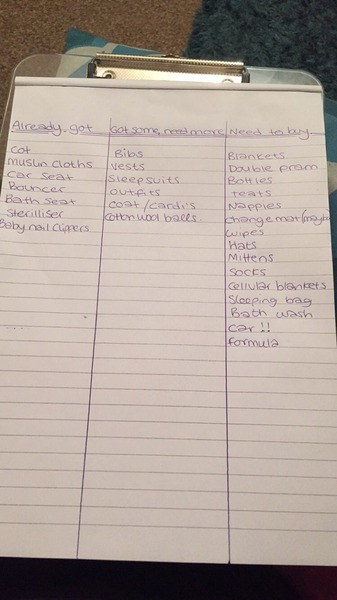 Already got
Got some, need more
Need to buy
Cot
Muslin Cloths
Car Seat
Bouncer
Bath Seat
Steriliser
Baby nail clippers
Bibs
Vests
Sleepsuits
Outfits
Coat / Cardi's
Cotton wool balls
Blankets
Double pram
Bottles
Teats
Nappies
Change mat (maybe
Wipes
Hats
Mittens
Socks
Cellular blankets
Sleeping bag
Bath wash
Car !!
Formula